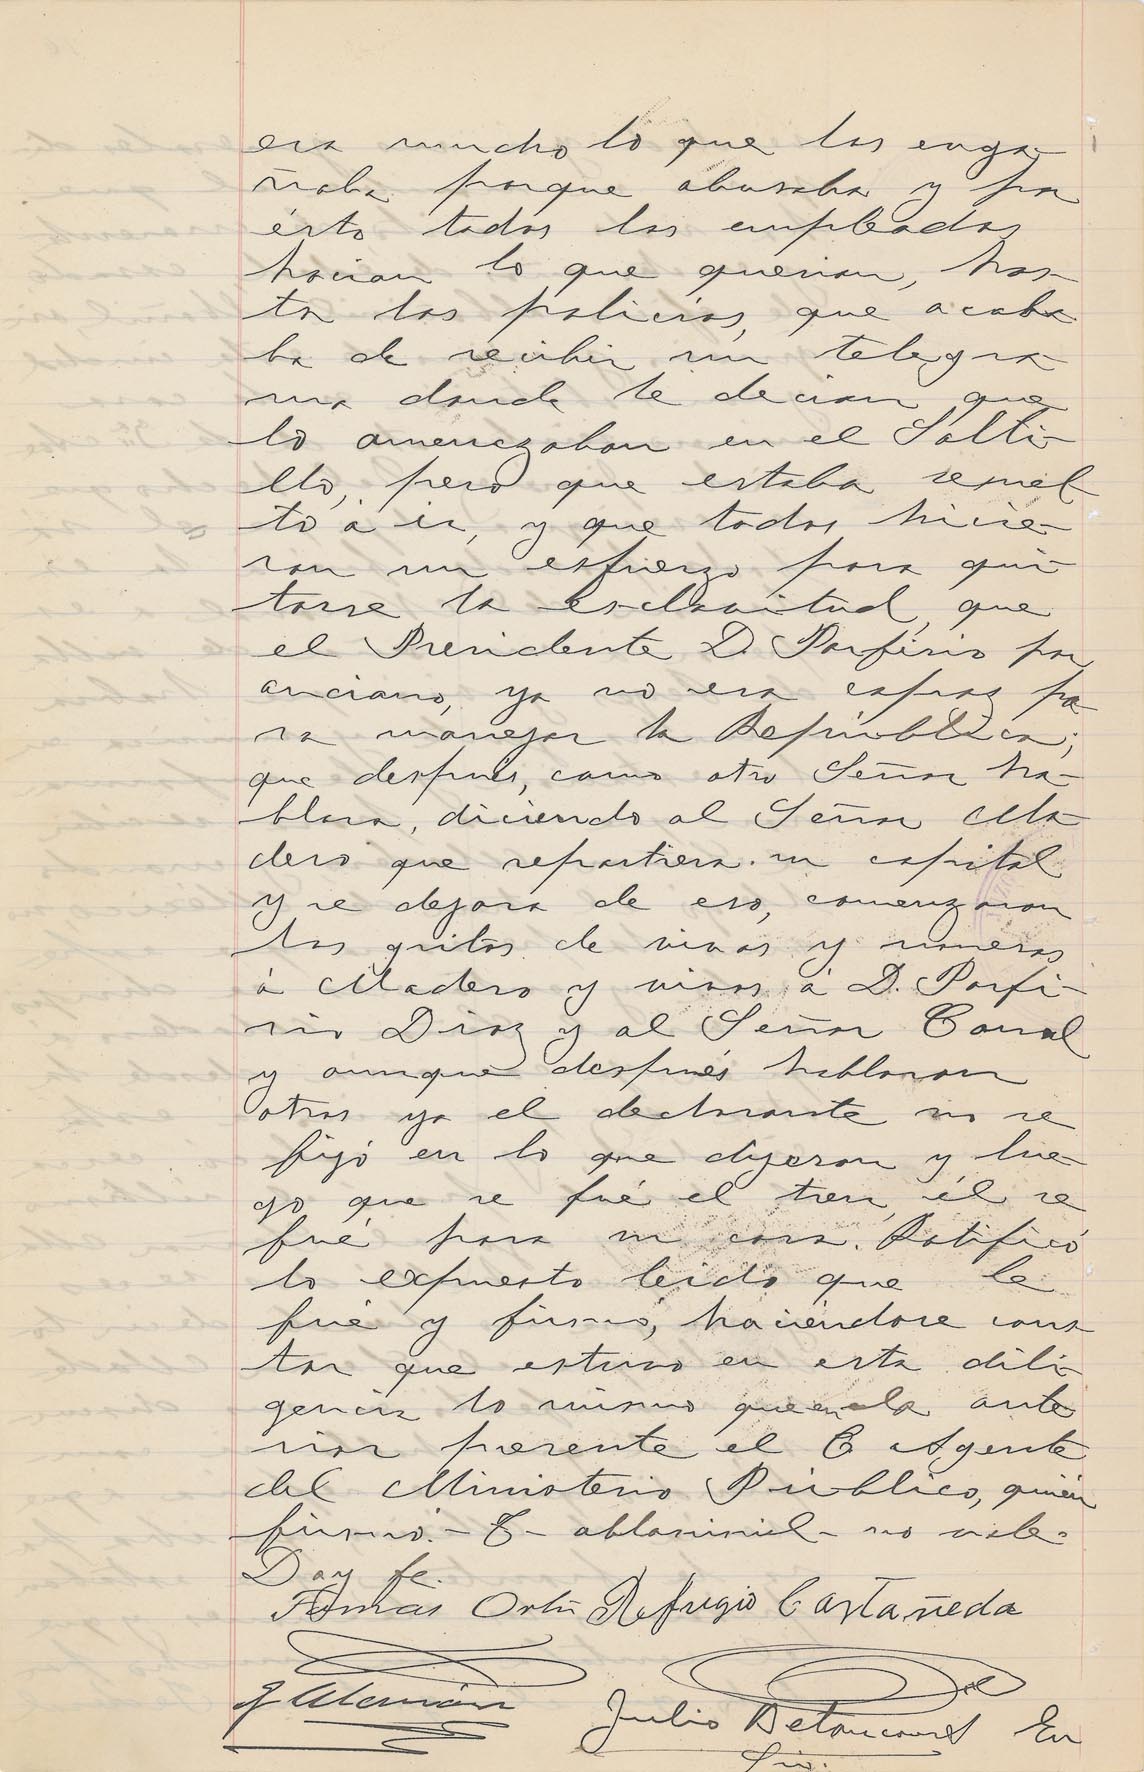 era mucho lo que los enga-
ñaba porque abusaba y por
ésto todos los empleados
hacian lo que querian, has-
ta los policías, que acaba
ba de recibir un telegra-
ma donde le decian que
lo amenazaban en el Salti-
llo, pero que estaba resuel
to á ir, y que todos hicie-
ran un esfuerzo para qui-
tarse la esclavitud, que
el Presidente D. Porfirio por
anciano, ya no era capaz pa-
ra manejar la República;
que después, como otro Señor ha-
blara, diciendo al Señor Ma-
dero que repartiera su capital
y se dejara de eso, comenzaron
los gritos de vivas y mueras
á Madero y vivas á D. Porfi-
rio Diaz y al Señor Corral
y aunque después hablaron
otros ya el declarante no se
fijó en lo que dijeron y lue-
go que se fué el tren, él se
fué para su casa. Ratificó
lo expuesto leido que le
fué y firmó, haciéndose cons-
tar que estuvo en esta dili-
gencia lo mismo que en la ante
rior presente el C. Agente
del Ministerio Público, quién
firmó.- T- - no vale-
Doy fe.
Tomás Ortiz Refugio Castañeda
J Alemán
Julio Betancourt
Srio.